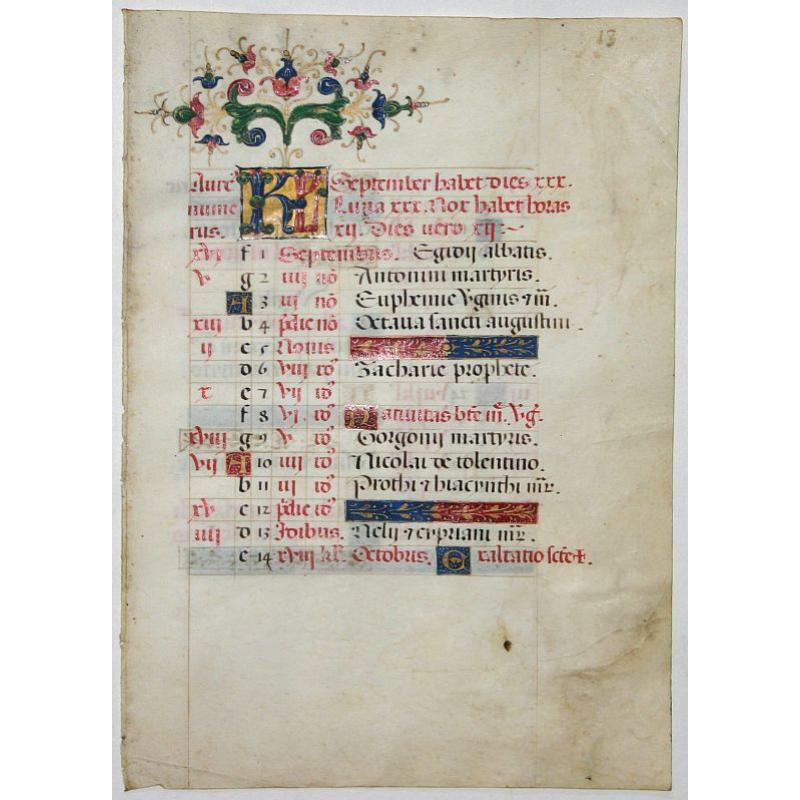 13
Aure' KL September habet dies xxx.
nume Luna xxx. Nox habet horas
rus. xij. Dies uero xij:~
xvi f 1 Septembris. Egidij abbatis.
v g 2 iiij nō Antonini martyris.
A 3 iij nō Euphemie v̓ginis ⁊ m̄.
xiij b 4 p̓die nō Octaua sancti augustini.
ij c 5 Nonis
d 6 viij id' Zacharie prophete.
x e 7 vij id'
f 8 vi id' Natiuitas bt̄e m̄. v̓g̓.
xviij g 9 v id' Gorgonij martyris.
vij A 10 iiij id' Nicolai de tolentino.
b 11 iij id' Prothi ⁊ hiacynthi mr̄.
xv c 12 p̓die id'
iiij d 13 Idibus. cypriani mr̄.
e 14 xviij kl'. Octobris. Exaltatio scte ✝.